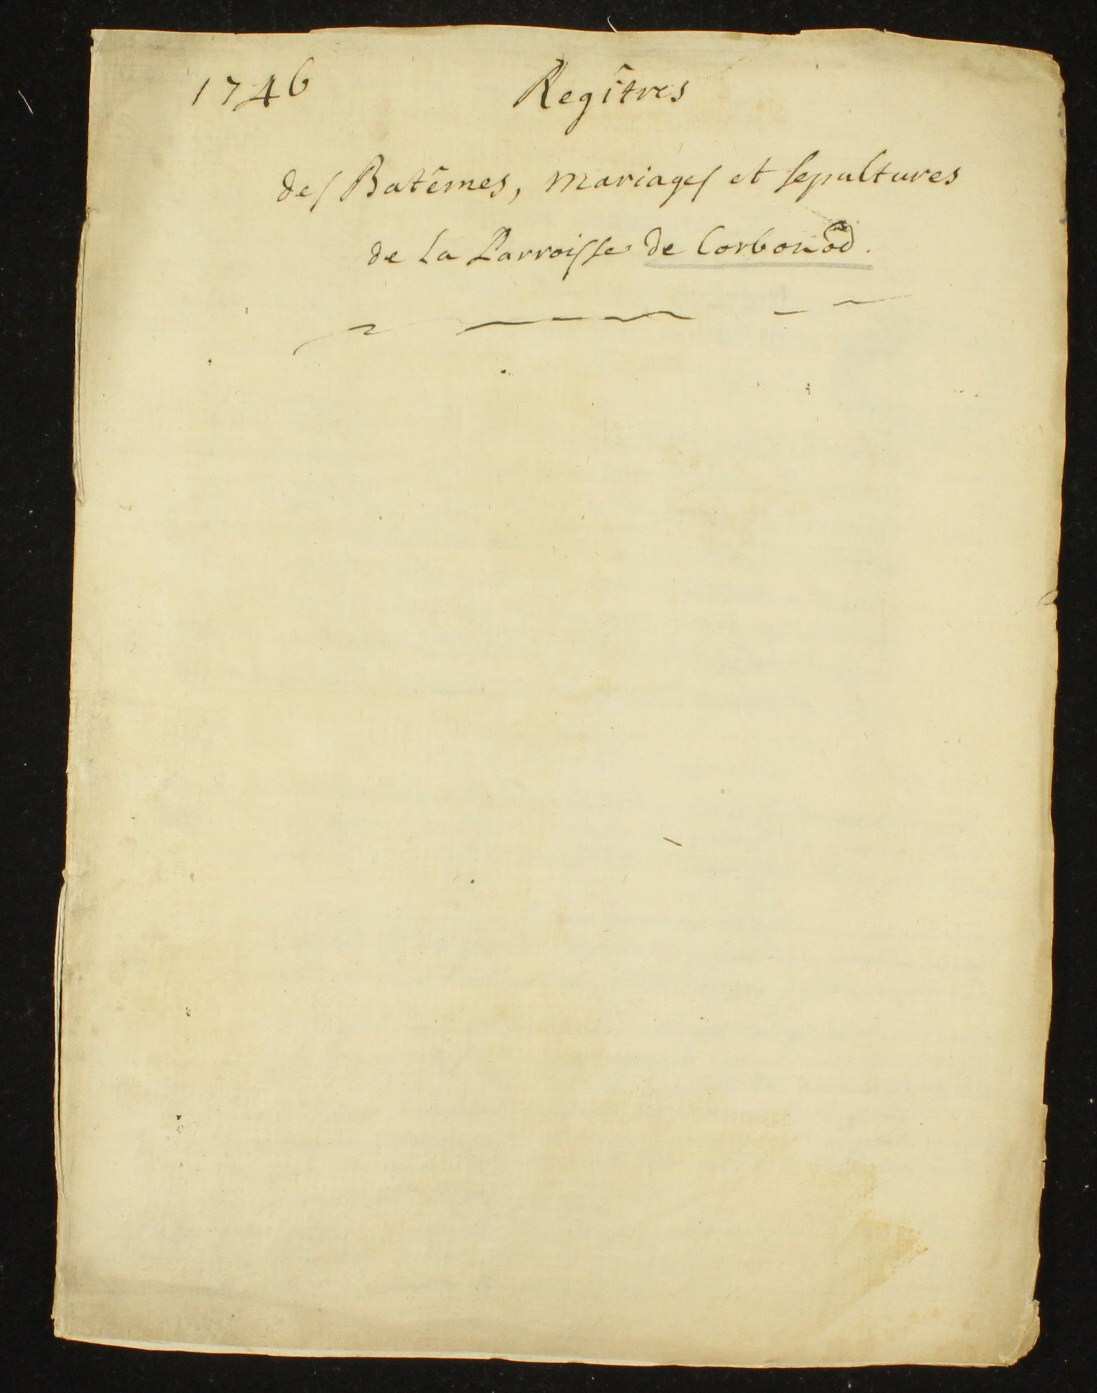 1746 Regîtres
des Batêmes, Mariages et sepultures
de la Parroisse de Corbonod.